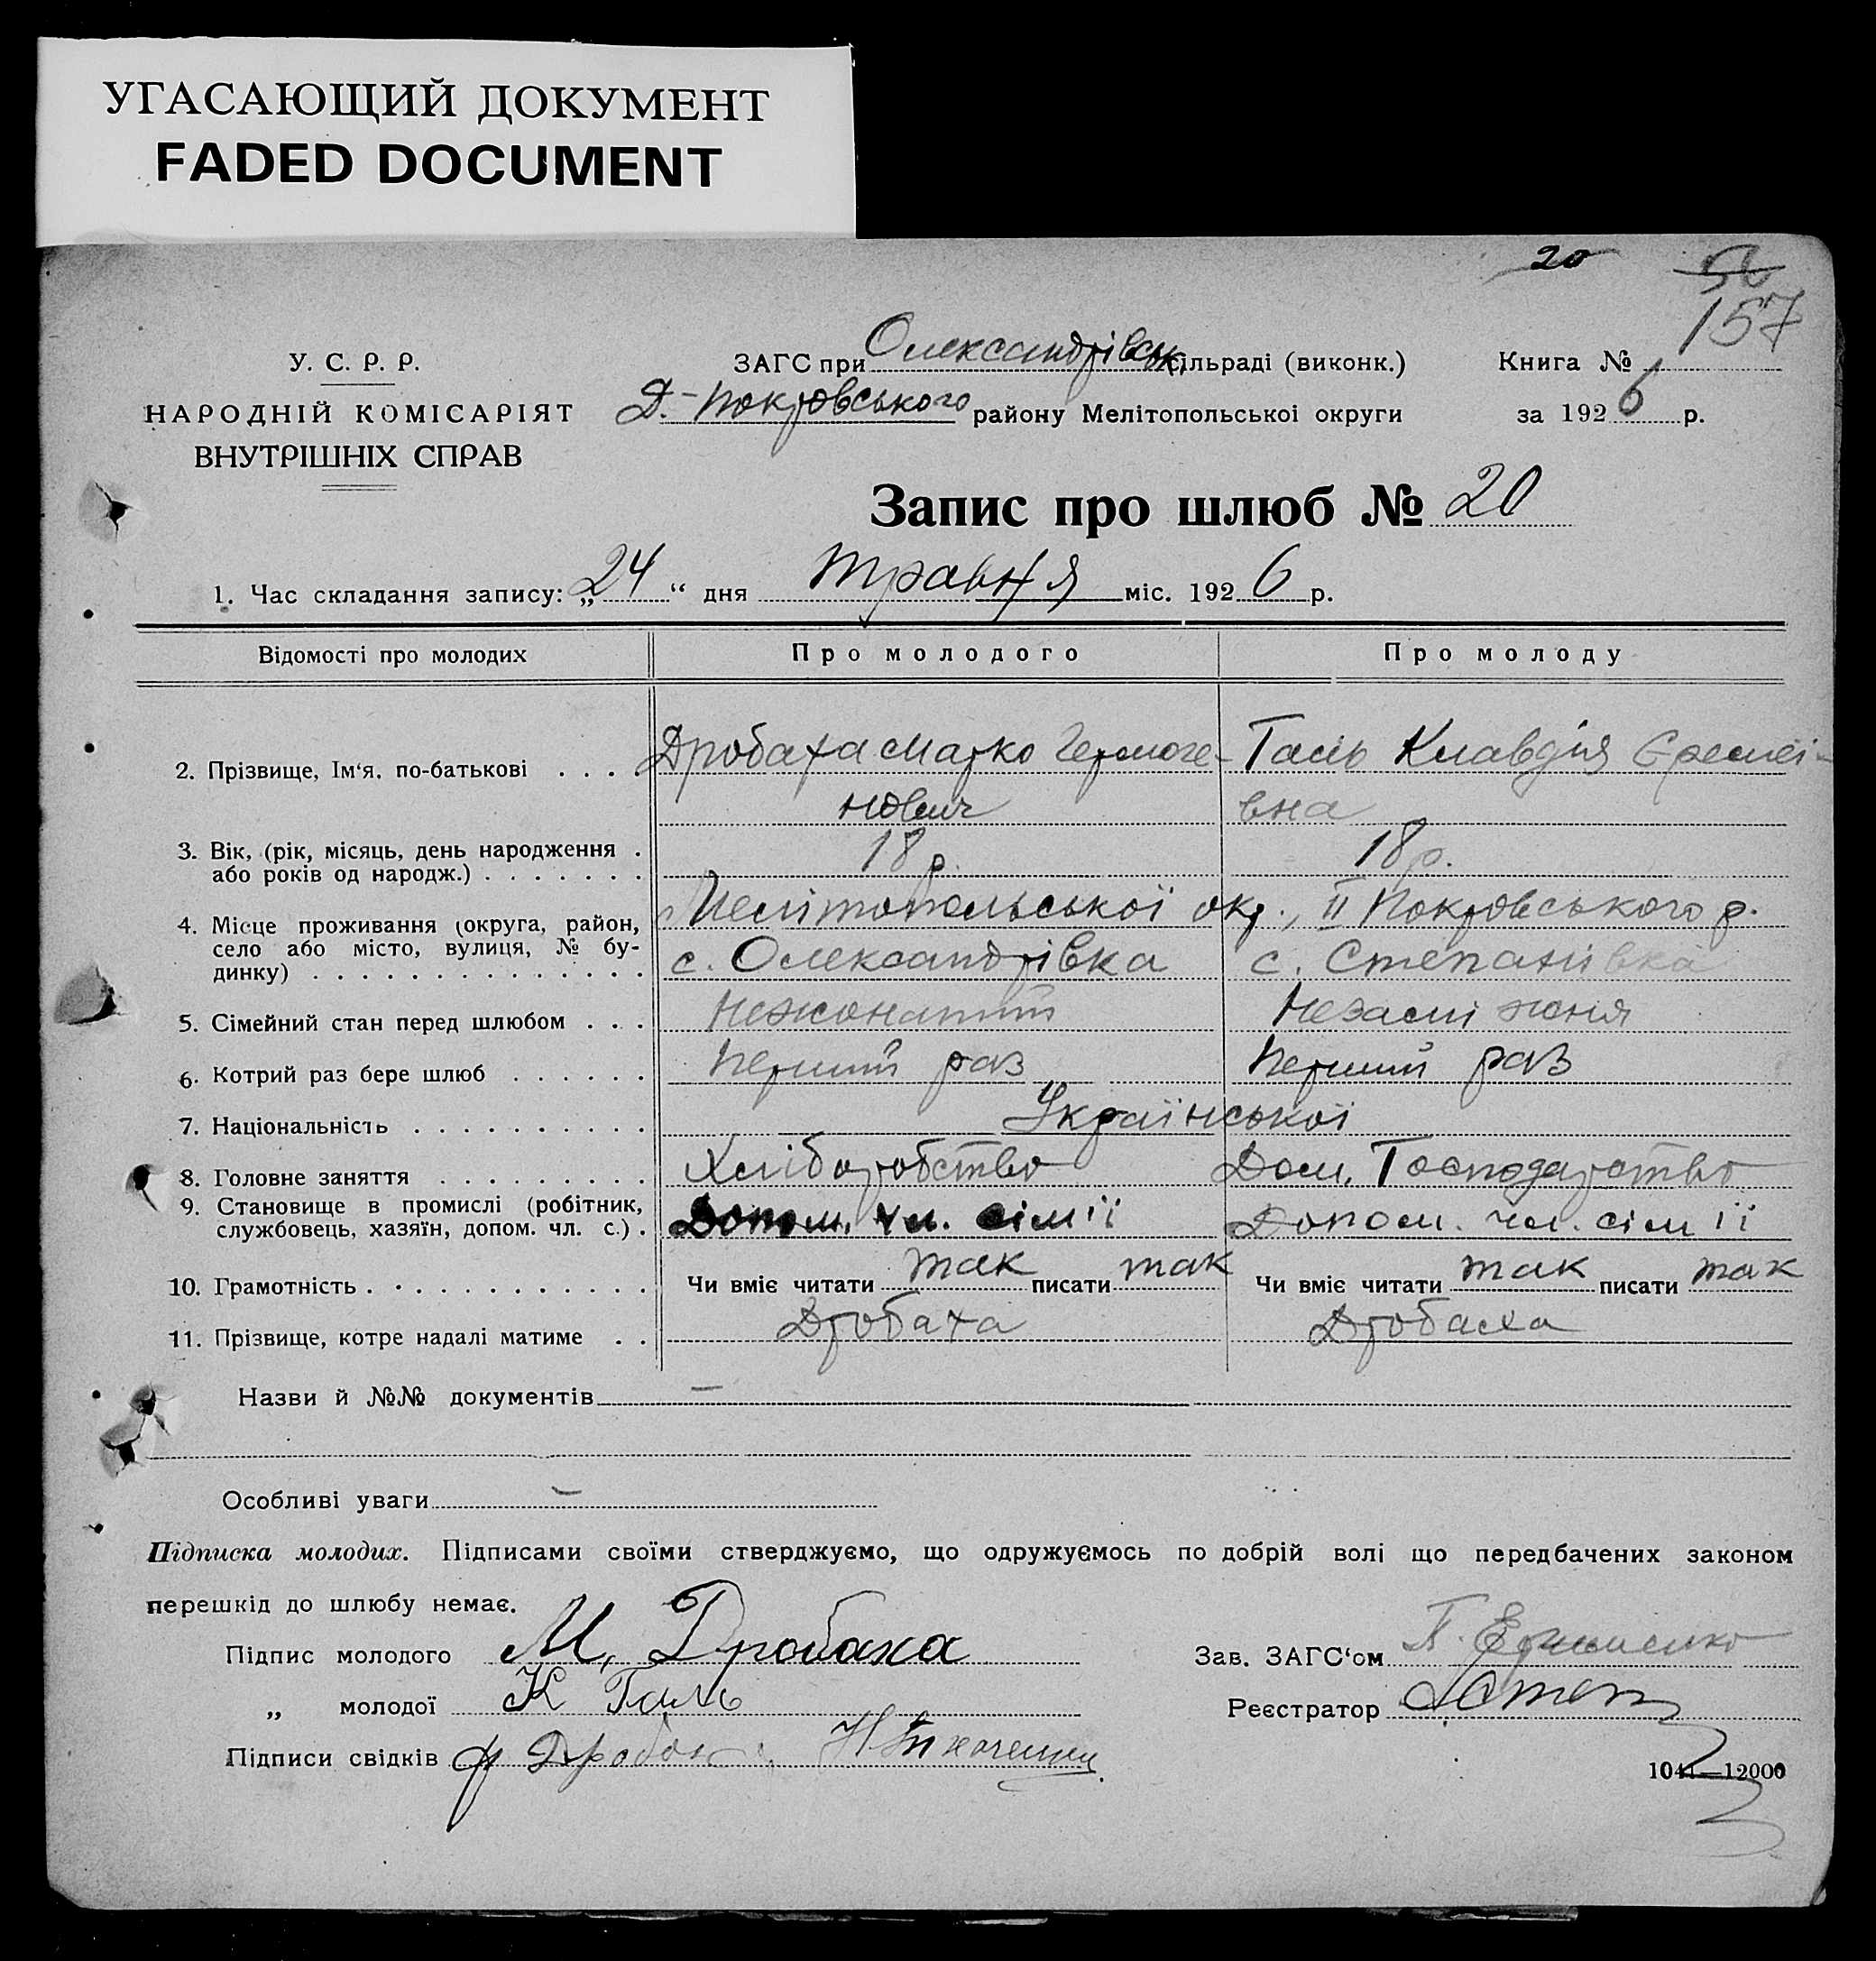 УГАСАЮЩИЙ ДОКУМЕНТ
FADED DOCUMENT
20 56
157
У. С. Р. Р.
НАРОДНІЙ КОМІСАРІЯТ
ВНУТРІШНІХ СПРАВ
ЗАГС при Олександрівськ. сільраді (виконк.)
Д.-Покровського району Мелітопольської округи
Книга №
за 1926 р.
Запис про шлюб № 20
1. Час складання запису: „24“ дня травня міс. 1926 р.
Відомості про молодих Про молодого Про молоду
2. Прізвище, Ім‘я, по-батькові . . . . Дробаха Марко Гермоге- Галь Клавдія Єремеі-
нович вна
3. Вік, (рік, місяць, день народження . 18 р. 18 р.
або років од народж.) . . . . . . .
4. Місце проживання (округа, район, Мелітопольської окр., II Покровського р.
село або місто, вулиця, № бу- с. Олександрівка с. Степанівка
динку) . . . . . . . . . . . . . .
5. Сімейний стан перед шлюбом . . . Нежонатий Незаміжня
6. Котрий раз бере шлюб . . . . . . Перший раз Перший раз
7. Національність . . . . . . . . . . Української
8. Головне заняття . . . . . . . . . Хліборобство Дом. Господарство
9. Становище в промислі (робітник, Допом. чл. сімії Допом. чл. сімії
службовець, хазяїн, допом. чл. с.) .
10. Грамотність . . . . . . . . . . . Чи вміє читати так писати так Чи вміє читати так писати так
11. Прізвище, котре надалі матиме . . Дробаха Дробаха
Назви й №№ документів —
Особливі уваги —
Підписка молодих. Підписами своїми стверджуємо, що одружуємось по добрій волі що передбачених законом
перешкід до шлюбу немає.
Підпис молодого М. Дробаха
„ молодої К Галь
Підписи свідків
Зав. ЗАГС‘ом
Реєстратор
1041—12000